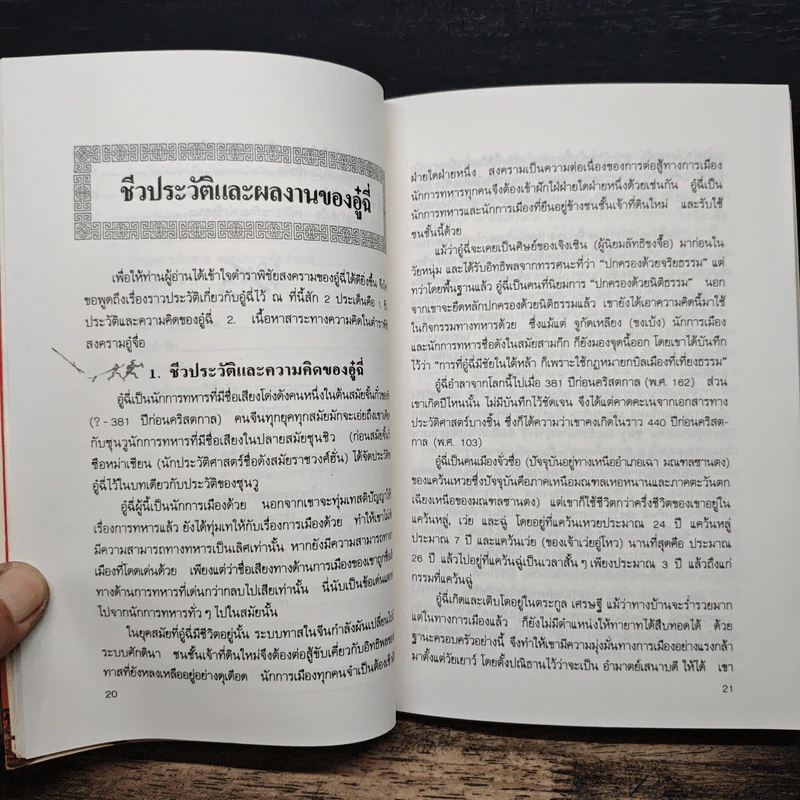 ชีวประวัติและผลงานของอู๋ฉี่
เพื่อให้ท่านผู้อ่านได้เข้าใจตำราพิชัยสงครามของอู๋ฉี่ได้ดียิ่งขึ้น
ขอพูดถึงเรื่องราวประวัติเกี่ยวกับอู๋ฉี่ไว้ ณ ที่นี้สัก 2 ประเด็นคือ 1.
ประวัติและความคิดของอู๋ฉี่ 2. เนื้อหาสาระทางความคิดในตำรา
สงครามอู๋จื่อ
1. ชีวประวัติและความคิดของอู๋ฉี่
อู๋ฉี่เป็นนักการทหารที่มีชื่อเสียงโด่งดังคนหนึ่งในต้นสมัยจั้นกั๋ว
(? - 381 ปีก่อนคริสตกาล) คนจีนทุกยุคทุกสมัยมักจะเอ่ยถึงเขา
กับซุนวูนักการทหารที่มีชื่อเสียงในปลายสมัยชุนชิว (ก่อนสมัยจั้นกั๋ว)
ซือหม่าเชียน (นักประวัติศาสตร์ชื่อดังสมัยราชวงศ์ฮั่น) ได้จัดประวัติ
อู๋ฉี่ไว้ในบทเดียวกับประวัติของซุนวู
อู๋ฉี่ผู้นี้เป็นนักการเมืองด้วย นอกจากเขาจะทุ่มเทสติปัญญาให้
เรื่องการทหารแล้ว ยังได้ทุ่มเทให้กับเรื่องการเมืองด้วย ทำให้เขาไม่
มีความสามารถทางทหารเป็นเลิศเท่านั้น หากยังมีความสามารถทาง
เมืองที่โดดเด่นด้วย เพียงแต่ว่าชื่อเสียงทางด้านการเมืองของเขาถูก
ทางด้านการทหารที่เด่นกว่ากลบไปเสียเท่านั้น นี่นับเป็นข้อเด่น
ไปจากนักการทหารทั่วๆ ไปในสมัยนั้น
ในยุคสมัยที่อู๋ฉี่มีชีวิตอยู่นั้น ระบบทาสในจีนกำลังผันเปลี่ยน
ระบบศักดินา ชนชั้นเจ้าที่ดินใหม่จึงต้องต่อสู้ขับเคี่ยวกับอิทธิพล
ทาสที่ยังหลงเหลืออยู่อย่างดุเดือด นักการเมืองทุกคนจำเป็นต้อง
20
ฝ่ายใดฝ่ายหนึ่ง สงครามเป็นความต่อเนื่องของการต่อสู้ทางการเมือง
นักการทหารทุกคนจึงต้องเข้าฝักใฝ่ฝ่ายใดฝ่ายหนึ่งด้วยเช่นกัน อู๋ฉี่เป็น
นักการทหารและนักการเมืองที่ยืนอยู่ข้างชนชั้นเจ้าที่ดินใหม่ และรับใช้
ชนชั้นนี้ด้วย
แม้ว่าอู๋ฉี่จะเคยเป็นศิษย์ของเจิงเซิน (ผู้นิยมลัทธิขงจื๊อ) มาก่อนใน
วัยหนุ่ม และได้รับอิทธิพลจากทรรศนะที่ว่า "ปกครองด้วยจริยธรรม" แต่
ทว่าโดยพื้นฐานแล้ว อู๋ฉี่เป็นคนที่นิยมการ "ปกครองด้วยนิติธรรม" นอก
จากเขาจะยึดหลักปกครองด้วยนิติธรรมแล้ว เขายังได้เอาความคิดนี้มาใช้
ในกิจกรรมทางทหารด้วย ซึ่งแม้แต่ จูกัดเหลียง (ขงเบ้ง) นักการเมือง
และนักการทหารชื่อดังในสมัยสามก๊ก ก็ยังมองจุดนี้ออก โดยเขาได้บันทึก
ไว้ว่า "การที่อู๋ฉี่มีชัยในใต้หล้า ก็เพราะใช้กฎหมายกบิลเมืองที่เที่ยงธรรม"
อู๋ฉี่อำลาจากโลกนี้ไปเมื่อ 381 ปีก่อนคริสตกาล (พ.ศ. 162) ส่วน
เขาเกิดปีไหนนั้น ไม่มีบันทึกไว้ชัดเจน จึงได้แต่คาดคะเนจากเอกสารทาง
ประวัติศาสตร์บางชิ้น ซึ่งก็ได้ความว่าเขาคงเกิดในราว 440 ปีก่อนคริสต-
กาล (พ.ศ. 103)
อู๋ฉี่เป็นคนเมืองจั่วซื่อ (ปัจจุบันอยู่ทางเหนืออำเภอเฉา มณฑลซานตง)
ของแคว้นเหวยซึ่งปัจจุบันคือภาคเหนือมณฑลเหอหนานและภาคตะวันตก
เฉียงเหนือของมณฑลซานตง) แต่เขาก็ใช้ชีวิตกว่าครึ่งชีวิตของเขาอยู่ใน
แคว้นหลู่, เว่ย และฉู่ โดยอยู่ที่แคว้นเหวยประมาณ 24 ปี แคว้นหลู่
ประมาณ 7 ปี และแคว้นเว่ย (ของเจ้าเว่ยอู่โหว) นานที่สุดคือ ประมาณ
26 ปี แล้วไปอยู่ที่แคว้นฉู่เป็นเวลาสั้นๆ เพียงประมาณ 3 ปี แล้วถึงแก่
กรรมที่แคว้นฉู่
อู๋ฉี่เกิดและเติบโตอยู่ในตระกูล เศรษฐี แม้ว่าทางบ้านจะร่ำรวยมาก
แต่ในทางการเมืองแล้ว ก็ยังไม่มีตำแหน่งให้ทายาทได้สืบทอดได้ ด้วย
ฐานะครอบครัวอย่างนี้ จึงทำให้เขามีความมุ่งมั่นทางการเมืองอย่างแรงกล้า
มาตั้งแต่วัยเยาว์ โดยตั้งปณิธานไว้ว่าจะเป็น อำมาตย์เสนาบดี ให้ได้ เขา
21